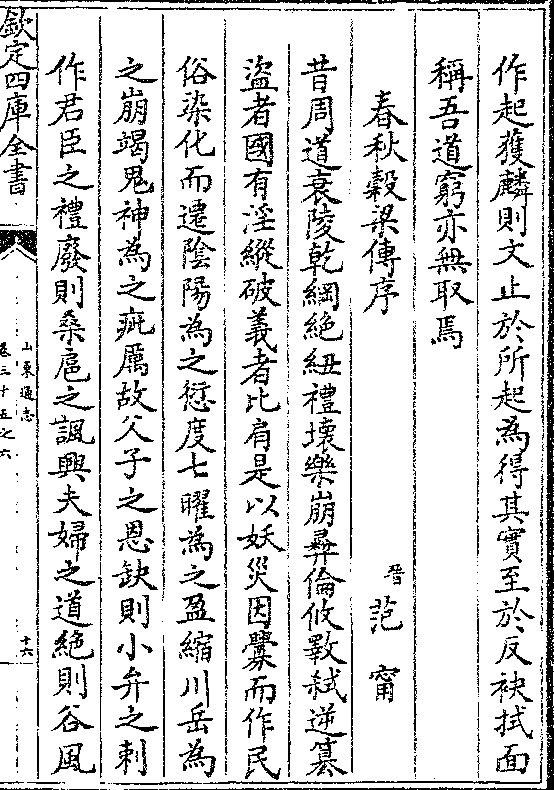 作起獲麟則文止於所起為得其實至於反袂拭面
稱吾道窮亦無取焉
春秋穀梁傳序
晉 范甯
昔周道衰陵乾綱絕紐禮壞樂崩彝倫攸斁弑逆篡
盜者國有淫縱破義者比肩是以妖災因釁而作民
俗染化而遷陰陽為之愆度七曜為之盈縮川岳為
之崩竭鬼神為之疵厲故父子之恩缺則小弁之刺
作君臣之禮廢則桑扈之諷興夫婦之道絕則谷風
欽定四庫全書
山東通志
卷三十五之六
十六